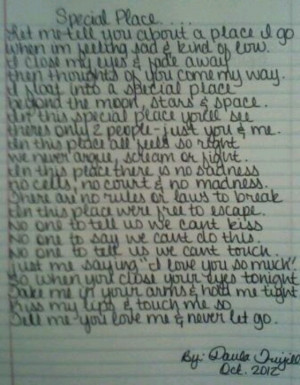 Special Place. . . .
Let me tell you about a place I go
when im feeling sad & kind of low.
I close my eyes & fade away
then thoughts of you come my way.
I float into a special place
beyond the moon, stars & space.
In this special place you'll see
theres only 2 people - just you & me.
In this place all feels so right
we never argue, scream or fight.
In this place there is no sadness
no cells, no court & no madness.
There are no rules or laws to break
In this place were free to escape.
No one to tell us we cant kiss
No one to say we cant do this.
No one to tell us we cant touch.
just me saying "I love you so much".
So when you close your eyes tonight
Take me in your arms & hold me tight
Kiss my lips & touch me so
Tell me you love me & never let go.
By: Paula Trujillo
Oct. 2012